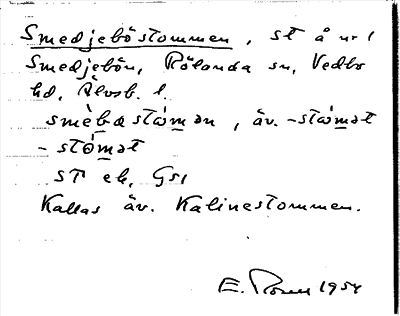 Smedjeböstommen, st å nr 1
Smedjebön, Rölanda sn, Vedbo
hd, Älvsb. l.
smèbæstȯ́mən, äv. -stȯ́mət
-stȯ́mət
ST ek, Gs1
Kallas äv. Kalinestommen.
E. 1954